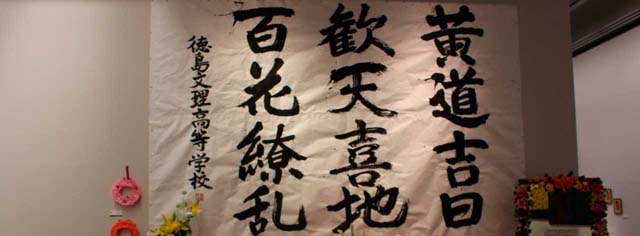 黄道吉日
歓天喜地
百花繚乱
徳島文理高等学校